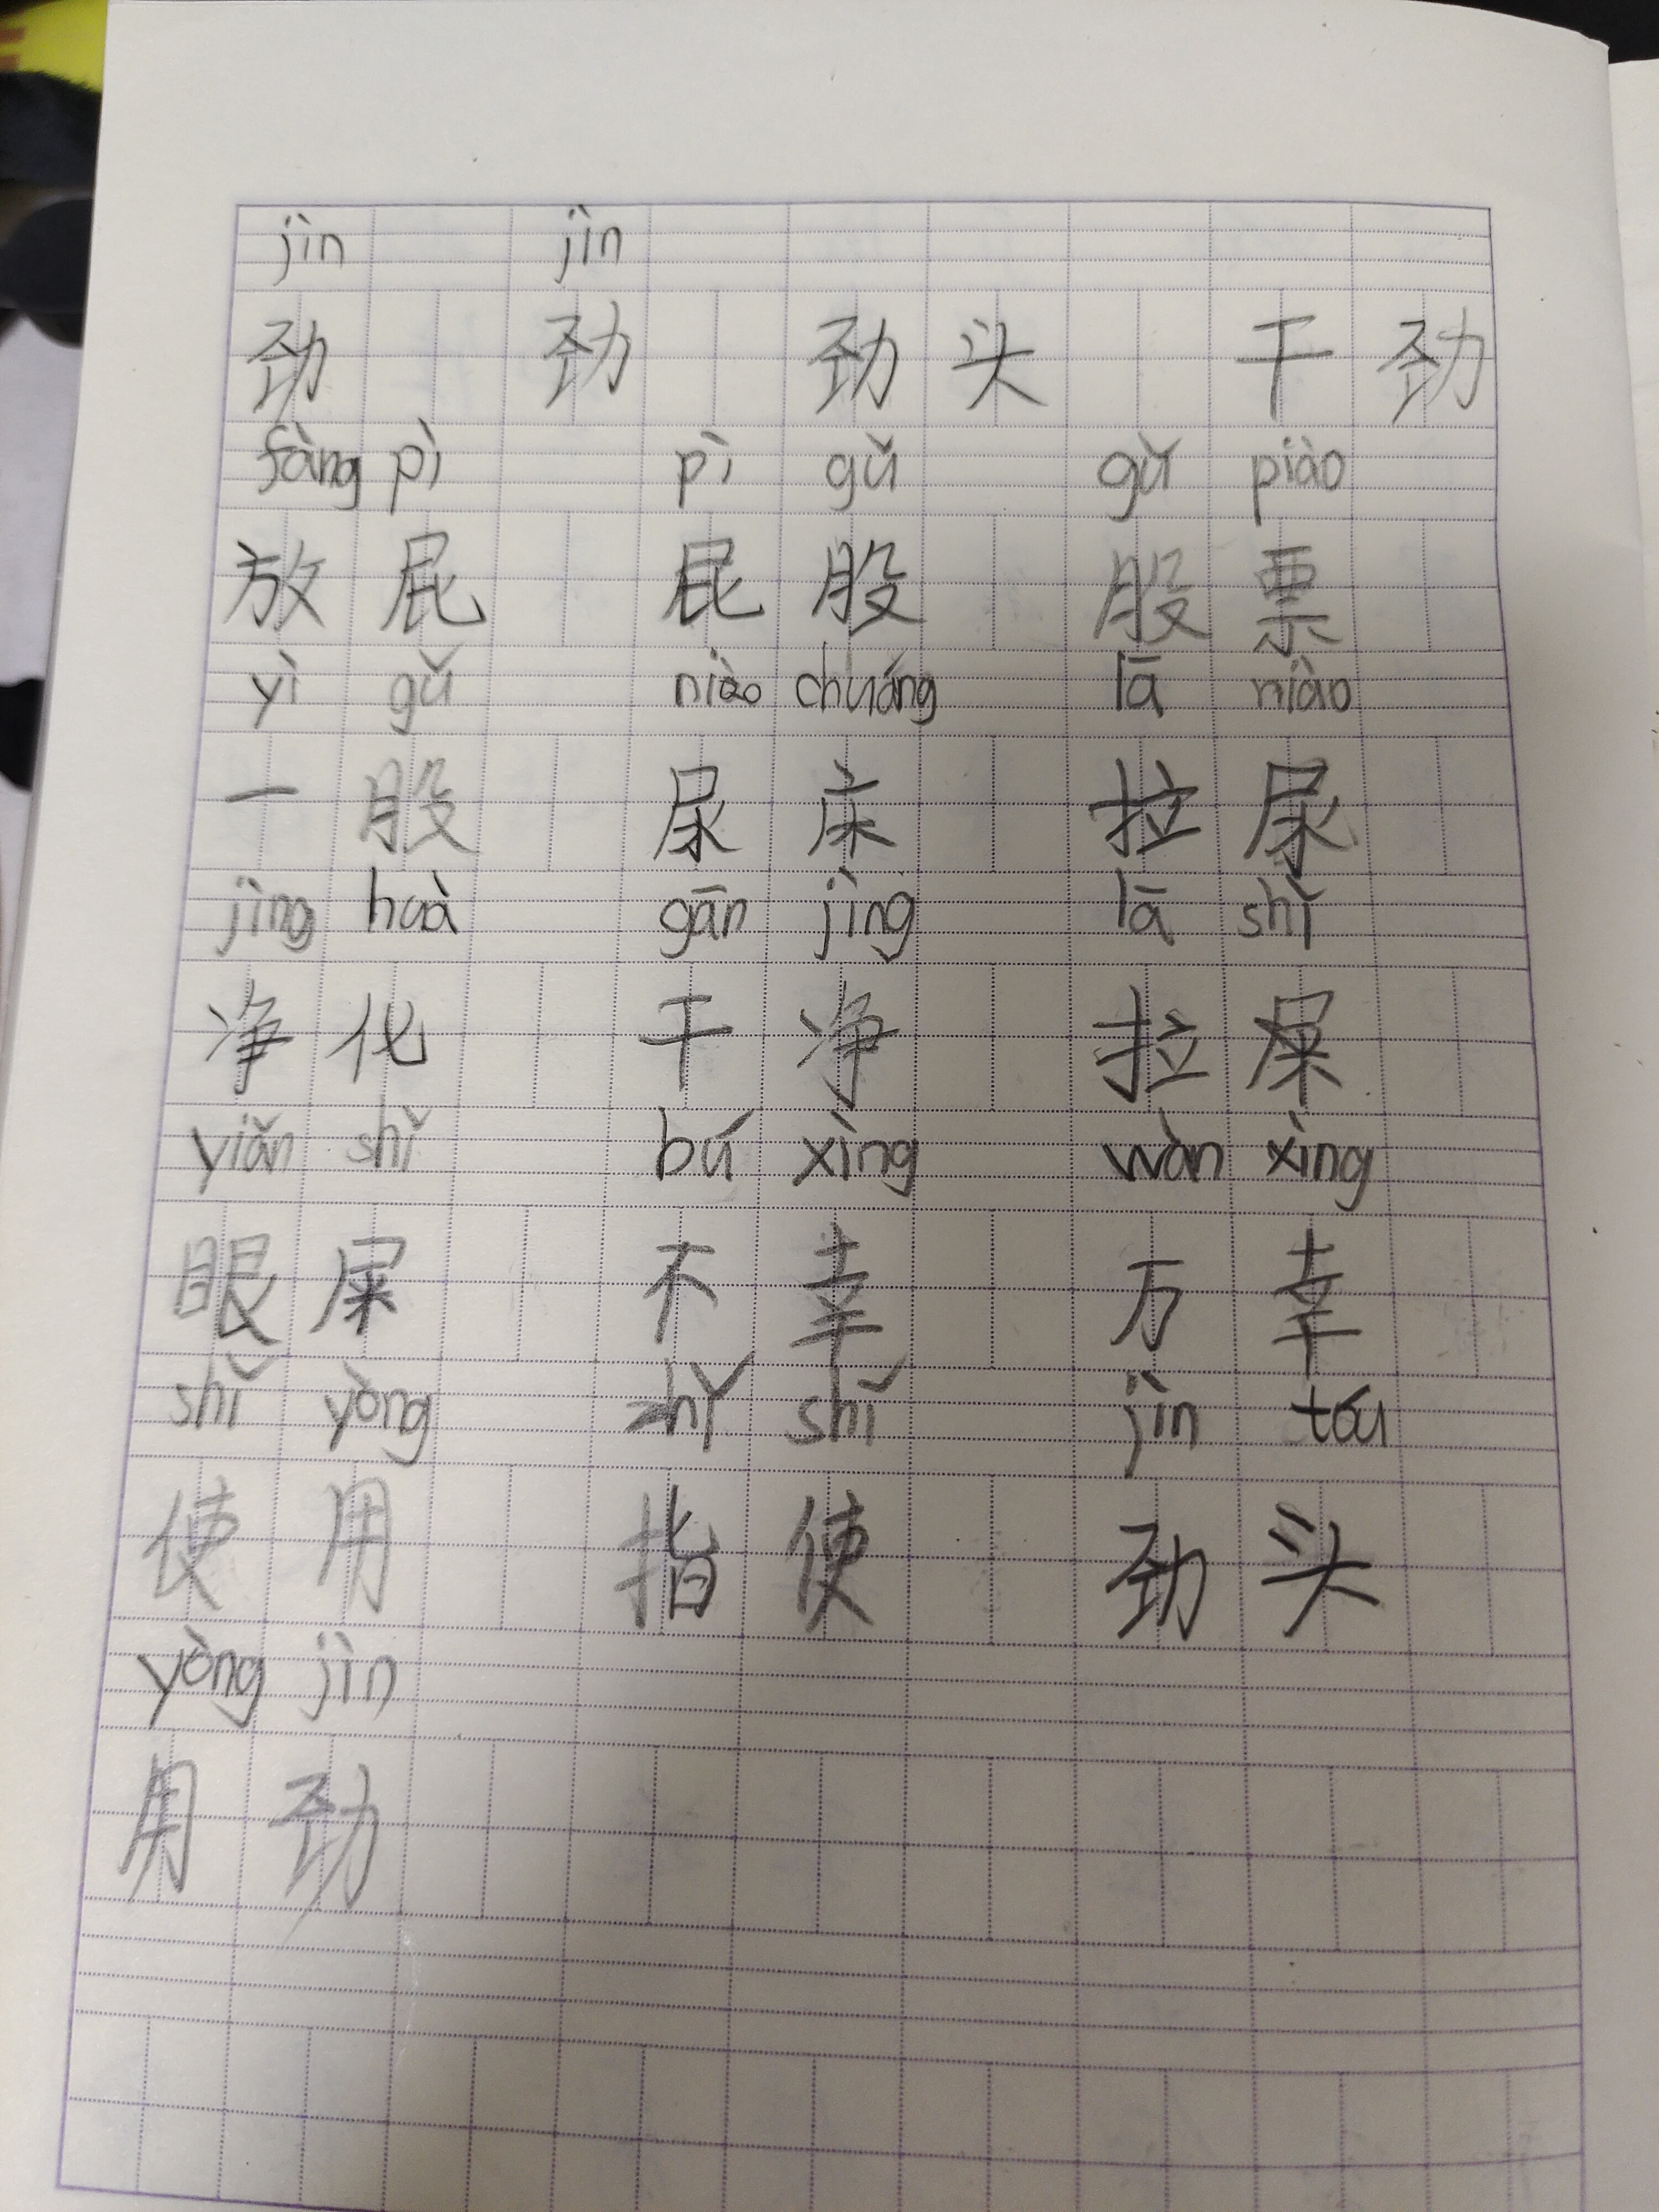 jìn jìn
劲 劲 劲头 干劲
fàng pì pì gǔ gǔ piào
放屁 屁股 股票
yì gǔ niào chuáng lā niào
一股 尿床 拉尿
jìng huà gān jìng lā shǐ
净化 干净 拉屎
yiǎn shǐ bú xìng wàn xìng
眼屎 不幸 万幸
shǐ yòng zhǐ shǐ jìn tóu
使用 指使 劲头
yòng jìn
用劲